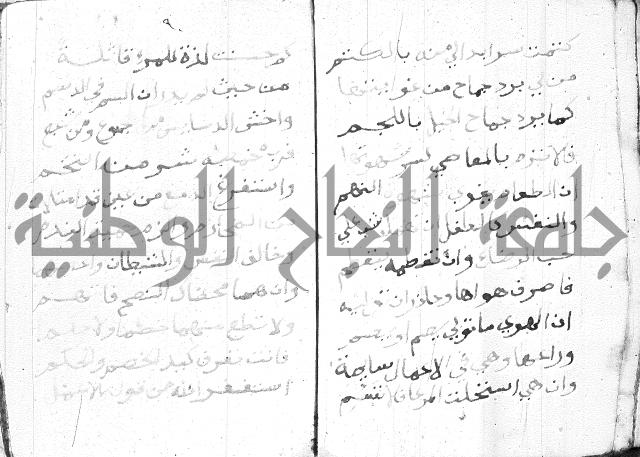 كتمت سرا بدا لي منه بالكتم
من لي برد جماح من غوايتها
كما يرد جماح الخيل باللجم
فلا بالمعاصي كسر شهوتها
ان الطعام يقوي شهوة النهم
والنفس كالطفل ان على
حب الرضاع وان تفطمه ينفطم
فاصرف هواها وحاذر ان توليه
ان الهوى ما تولى يصم او يصم
وراعها وهي في الاعمال سايمة
وان هي استحلت المرعى تسم
٩
كم حسنت لذة للمرء قاتلة
من حيث لم يدر ان السم في الدسم
واخش الدسايس من جوع ومن شبع
فرب مخمصة شر من التخم
واستفرغ الدمع من عين قد امتلئت
من المحارم والزم حمية الندم
وخالف النفس والشيطان واعصهما
وان هما محضاك النصح فاتهم
ولا تطع منهما خصما ولا حكما
فانت تعرف كيد الخصم والحكم
استغفر الله من قول بلا عمل
جامعة النجاح الوطنية